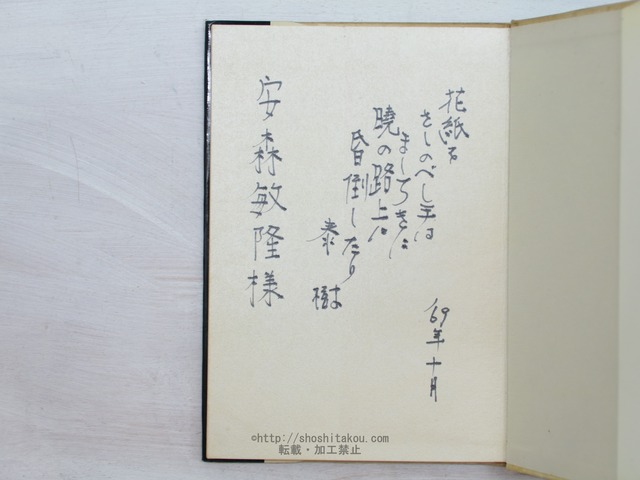 花紙を
さしのべし手は
ましろきに
暁の路上に
昏倒したり
泰樹
'69年十月
安森敏隆様
©http://shoshitakou.com
転載・加工禁止